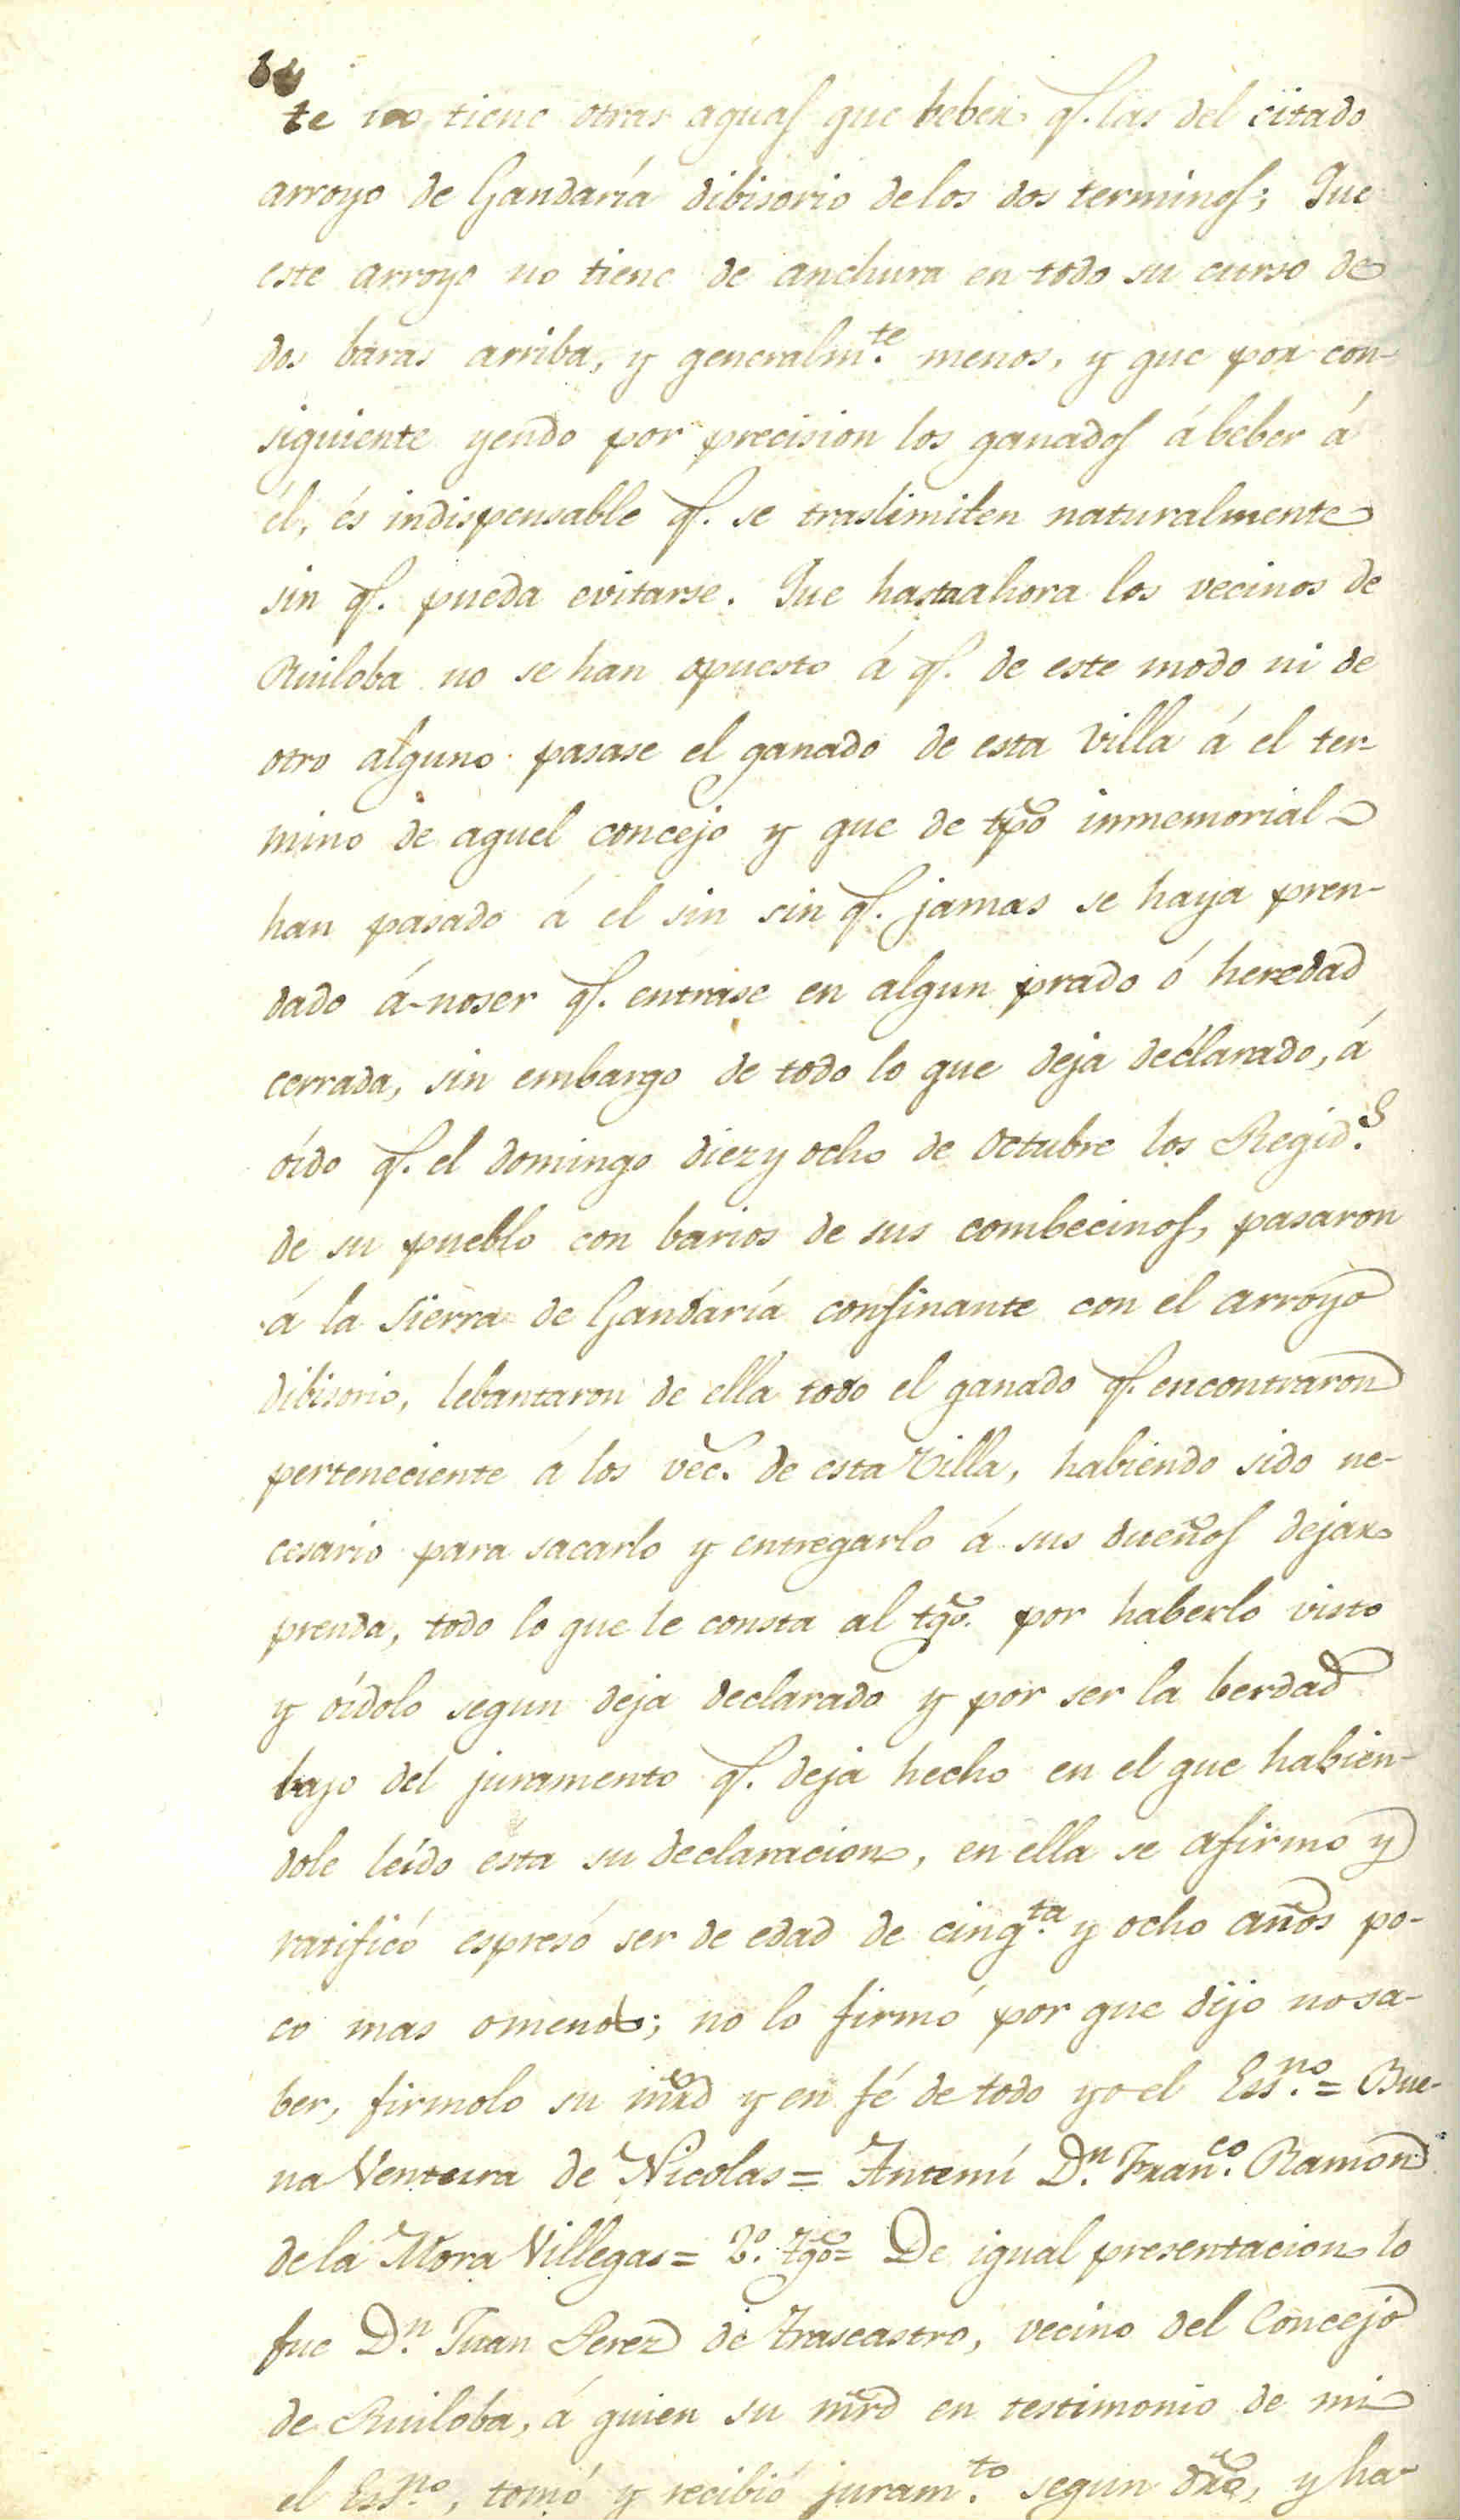 te no tiene otras aguas que beber q.e las del citado
arroyo de Gandaría dibisorio delos dos terminos; Que
este arroyo no tiene de anchura en todo su curso de
dos baras arriba, y generalm.te menos, y que por con-
siguiente yendo por precision los ganados á beber á
él, és indispensable q.e se traslimiten naturalmente
sin q.e pueda evitarse. Que hastaahora los vecinos de
Ruiloba no se han opuesto á q.e de este modo ni de
otro alguno pasase el ganado de esta Villa á el ter-
mino de aquel concejo y que de tpõ inmemorial
han pasado á el sin sin q.e jamas se haya pren-
dado á-noser q.e entrase en algun prado ó heredad
cerrada, sin embargo de todo lo que deja declarado, á
oído q.e el domingo diez y ocho de Octubre los Regid.s
de su pueblo con barios de sus combecinos, pasaron
á la Sierra de Gandaría confinante con el arroyo
dibisorio, lebantaron de ella todo el ganado q.e encontraron
perteneciente á los vec.s de esta Villa, habiendo sido ne-
cesario para sacarlo y entregarlo á sus dueños dejar
prenda, todo lo que le consta al tgõ. por haberlo visto
y oídolo segun deja declarado y por ser la berdad
bajo del juramento q.e deja hecho en el que habien-
dole leído esta su declaracion, en ella se afirmó y
ratificó espresó ser de edad de cinq.ta y ocho años po-
co mas omenos; no lo firmó por que dijo nosa-
ber, firmolo su mrd y en fé de todo yo el Ess.no = Bue-
na Ventura de Nicolas = Antemí D.n Fran.co Ramon
dela Mora Villegas = 2.º Tgõ = De igual presentacion lo
fue D.n Juan Perez de Trascastro, vecino del Concejo
de Ruiloba, á quien su mrd en testimonio de mi
el Ess.no, tomó y recibió juram.to segun dro, y ha-